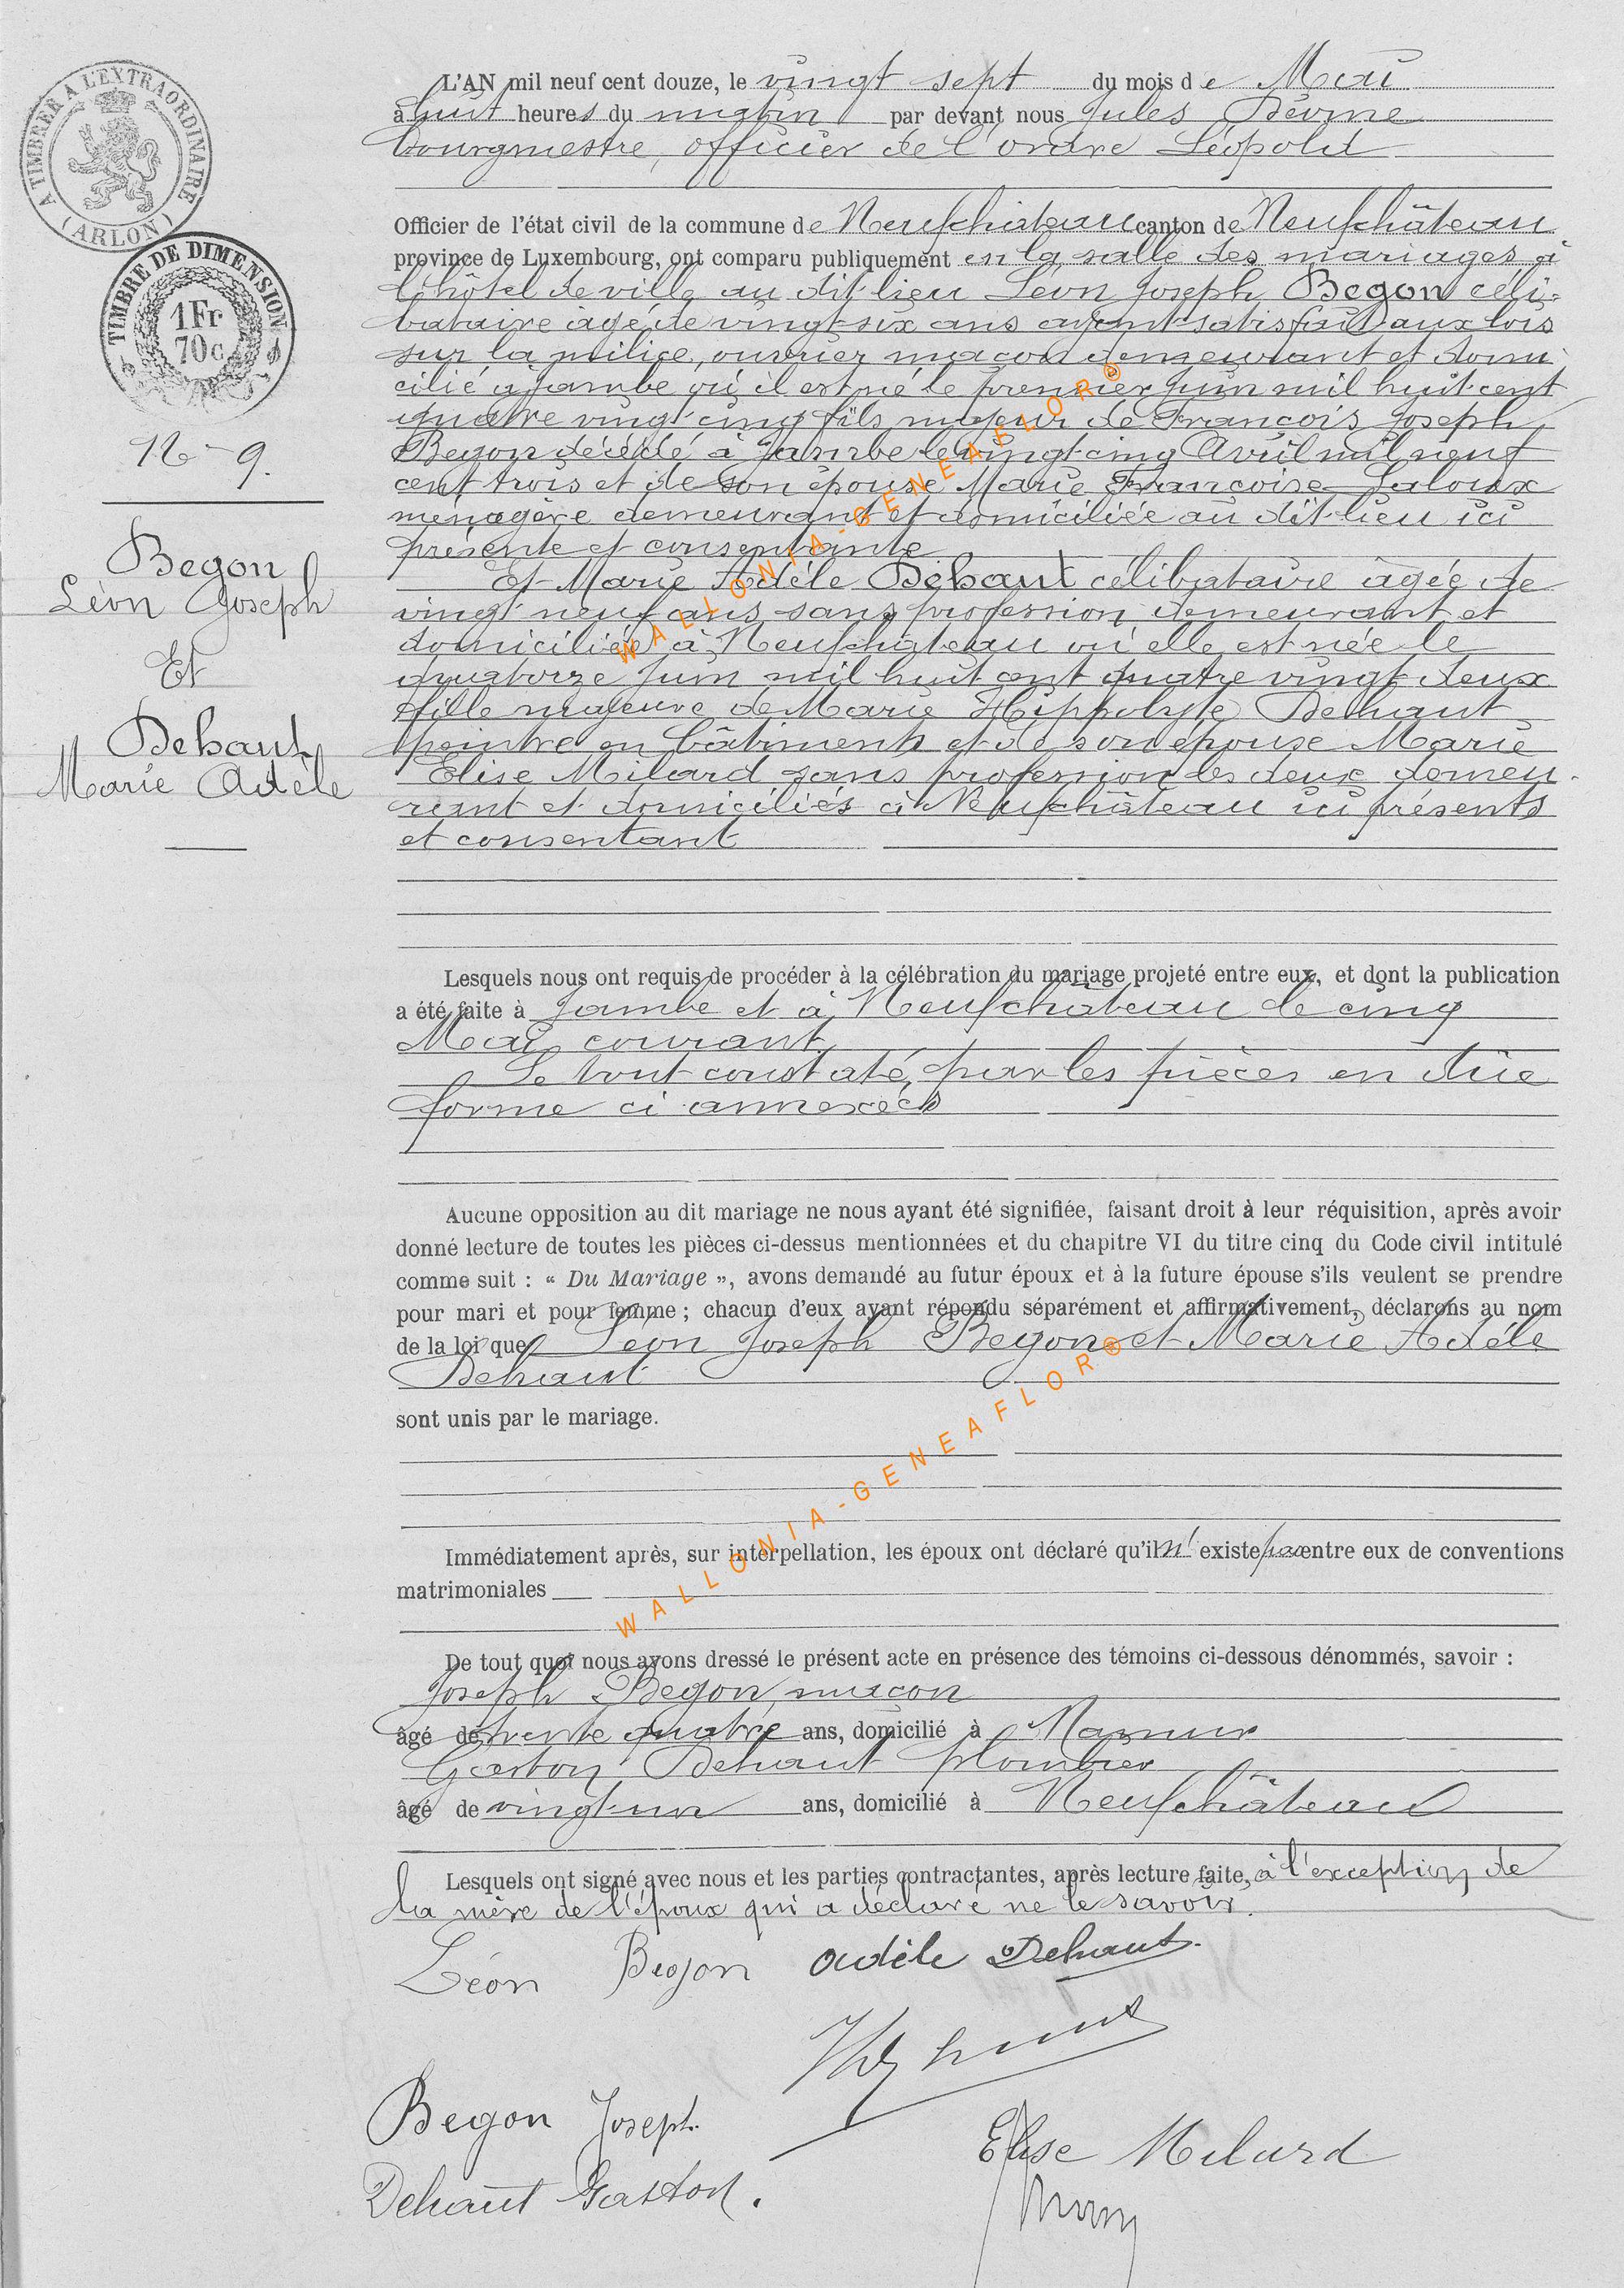 A TIMBRER A L'EXTRAORDINAIRE
(ARLON)
TIMBRE DE DIMENSION
1Fr
70c
12-9.
Begon
Léon Joseph
Et
Dehaut
Marie Adèle
L'AN mil neuf cent douze, le vingt sept du mois de Mai
à huit heures du matin par devant nous Jules
bourgmestre, officier de l'ordre Léopold
Officier de l'état civil de la commune de Neufchâteau canton de Neufchâteau
province de Luxembourg, ont comparu publiquement en la salle des mariages à
l'hôtel de ville au dit lieu Léon Joseph Begon céli-
bataire âgé de vingt-six ans ayant satisfait aux lois
sur la milice, ouvrier maçon demeurant et domi-
cilié à Jambe où il est né le premier Juin mil huit cent
quatre vingt cinq fils majeur de François Joseph
Begon décédé à Jambe le vingt-cinq Avril mil neuf
cent trois et de son épouse Marie Françoise Laloux
ménagère demeurant et domiciliée au dit lieu ici
présente et consentante
Et Marie Adèle Dehaut célibataire âgée de
vingt neuf ans sans profession demeurant et
domiciliée à Neufchateau où elle est née le
quatorze Juin mil huit cent quatre vingt deux
fille majeure de Marie Hippolyte Dehaut
peintre en bâtiments et de son épouse Marie
Elise Milard sans profession les deux demeu-
rant et domiciliés à Neufchâteau ici présents
et consentant
Lesquels nous ont requis de procéder à la célébration du mariage projeté entre eux, et dont la publication
a été faite à Jambe et à Neufchateau le cinq
Mai courant
Le tout constaté par les pièces en dûe
forme ci annexées
Aucune opposition au dit mariage ne nous ayant été signifiée, faisant droit à leur réquisition, après avoir
donné lecture de toutes les pièces ci-dessus mentionnées et du chapitre VI du titre cinq du Code civil intitulé
comme suit : « Du Mariage », avons demandé au futur époux et à la future épouse s'ils veulent se prendre
pour mari et pour femme ; chacun d'eux ayant répondu séparément et affirmativement, déclarons au nom
de la loi que Léon Joseph Begon et Marie Adèle
Dehaut
sont unis par le mariage.
Immédiatement après, sur interpellation, les époux ont déclaré qu'il n'existe pas entre eux de conventions
matrimoniales
De tout quoi nous avons dressé le présent acte en présence des témoins ci-dessous dénommés, savoir :
Joseph Begon, maçon
âgé de trente quatre ans, domicilié à Namur
Gaston Dehaut plombier
âgé de vingt-un ans, domicilié à Neufchâteau
Lesquels ont signé avec nous et les parties contractantes, après lecture faite, à l'exception de
la mère de l'époux qui a déclaré ne le savoir.
Léon Begon Adèle Dehaut
Begon Joseph
Elise Milard
Dehaut Gaston.
WALLONIA-GENEAFLOR®
WALLONIA-GENEAFLOR®